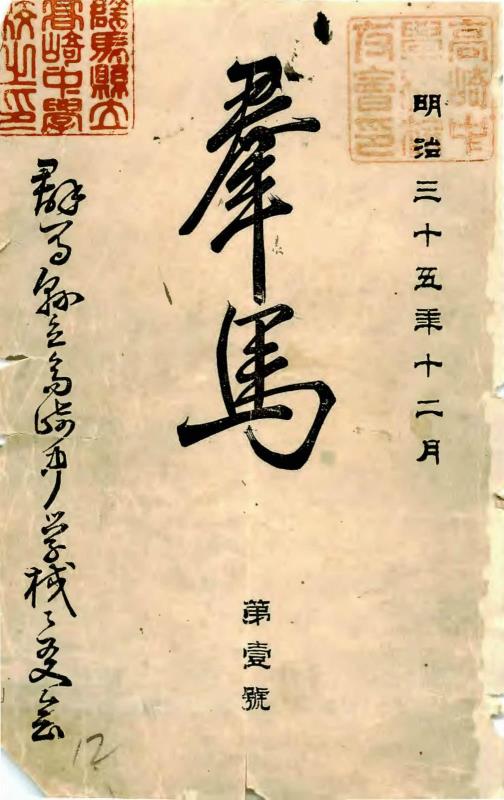 高崎中
學校校
友會印
明治三十五年十二月
羣馬
第壹號
群馬縣立
高崎中學
校之印
群馬縣立高崎中学校々友会
12